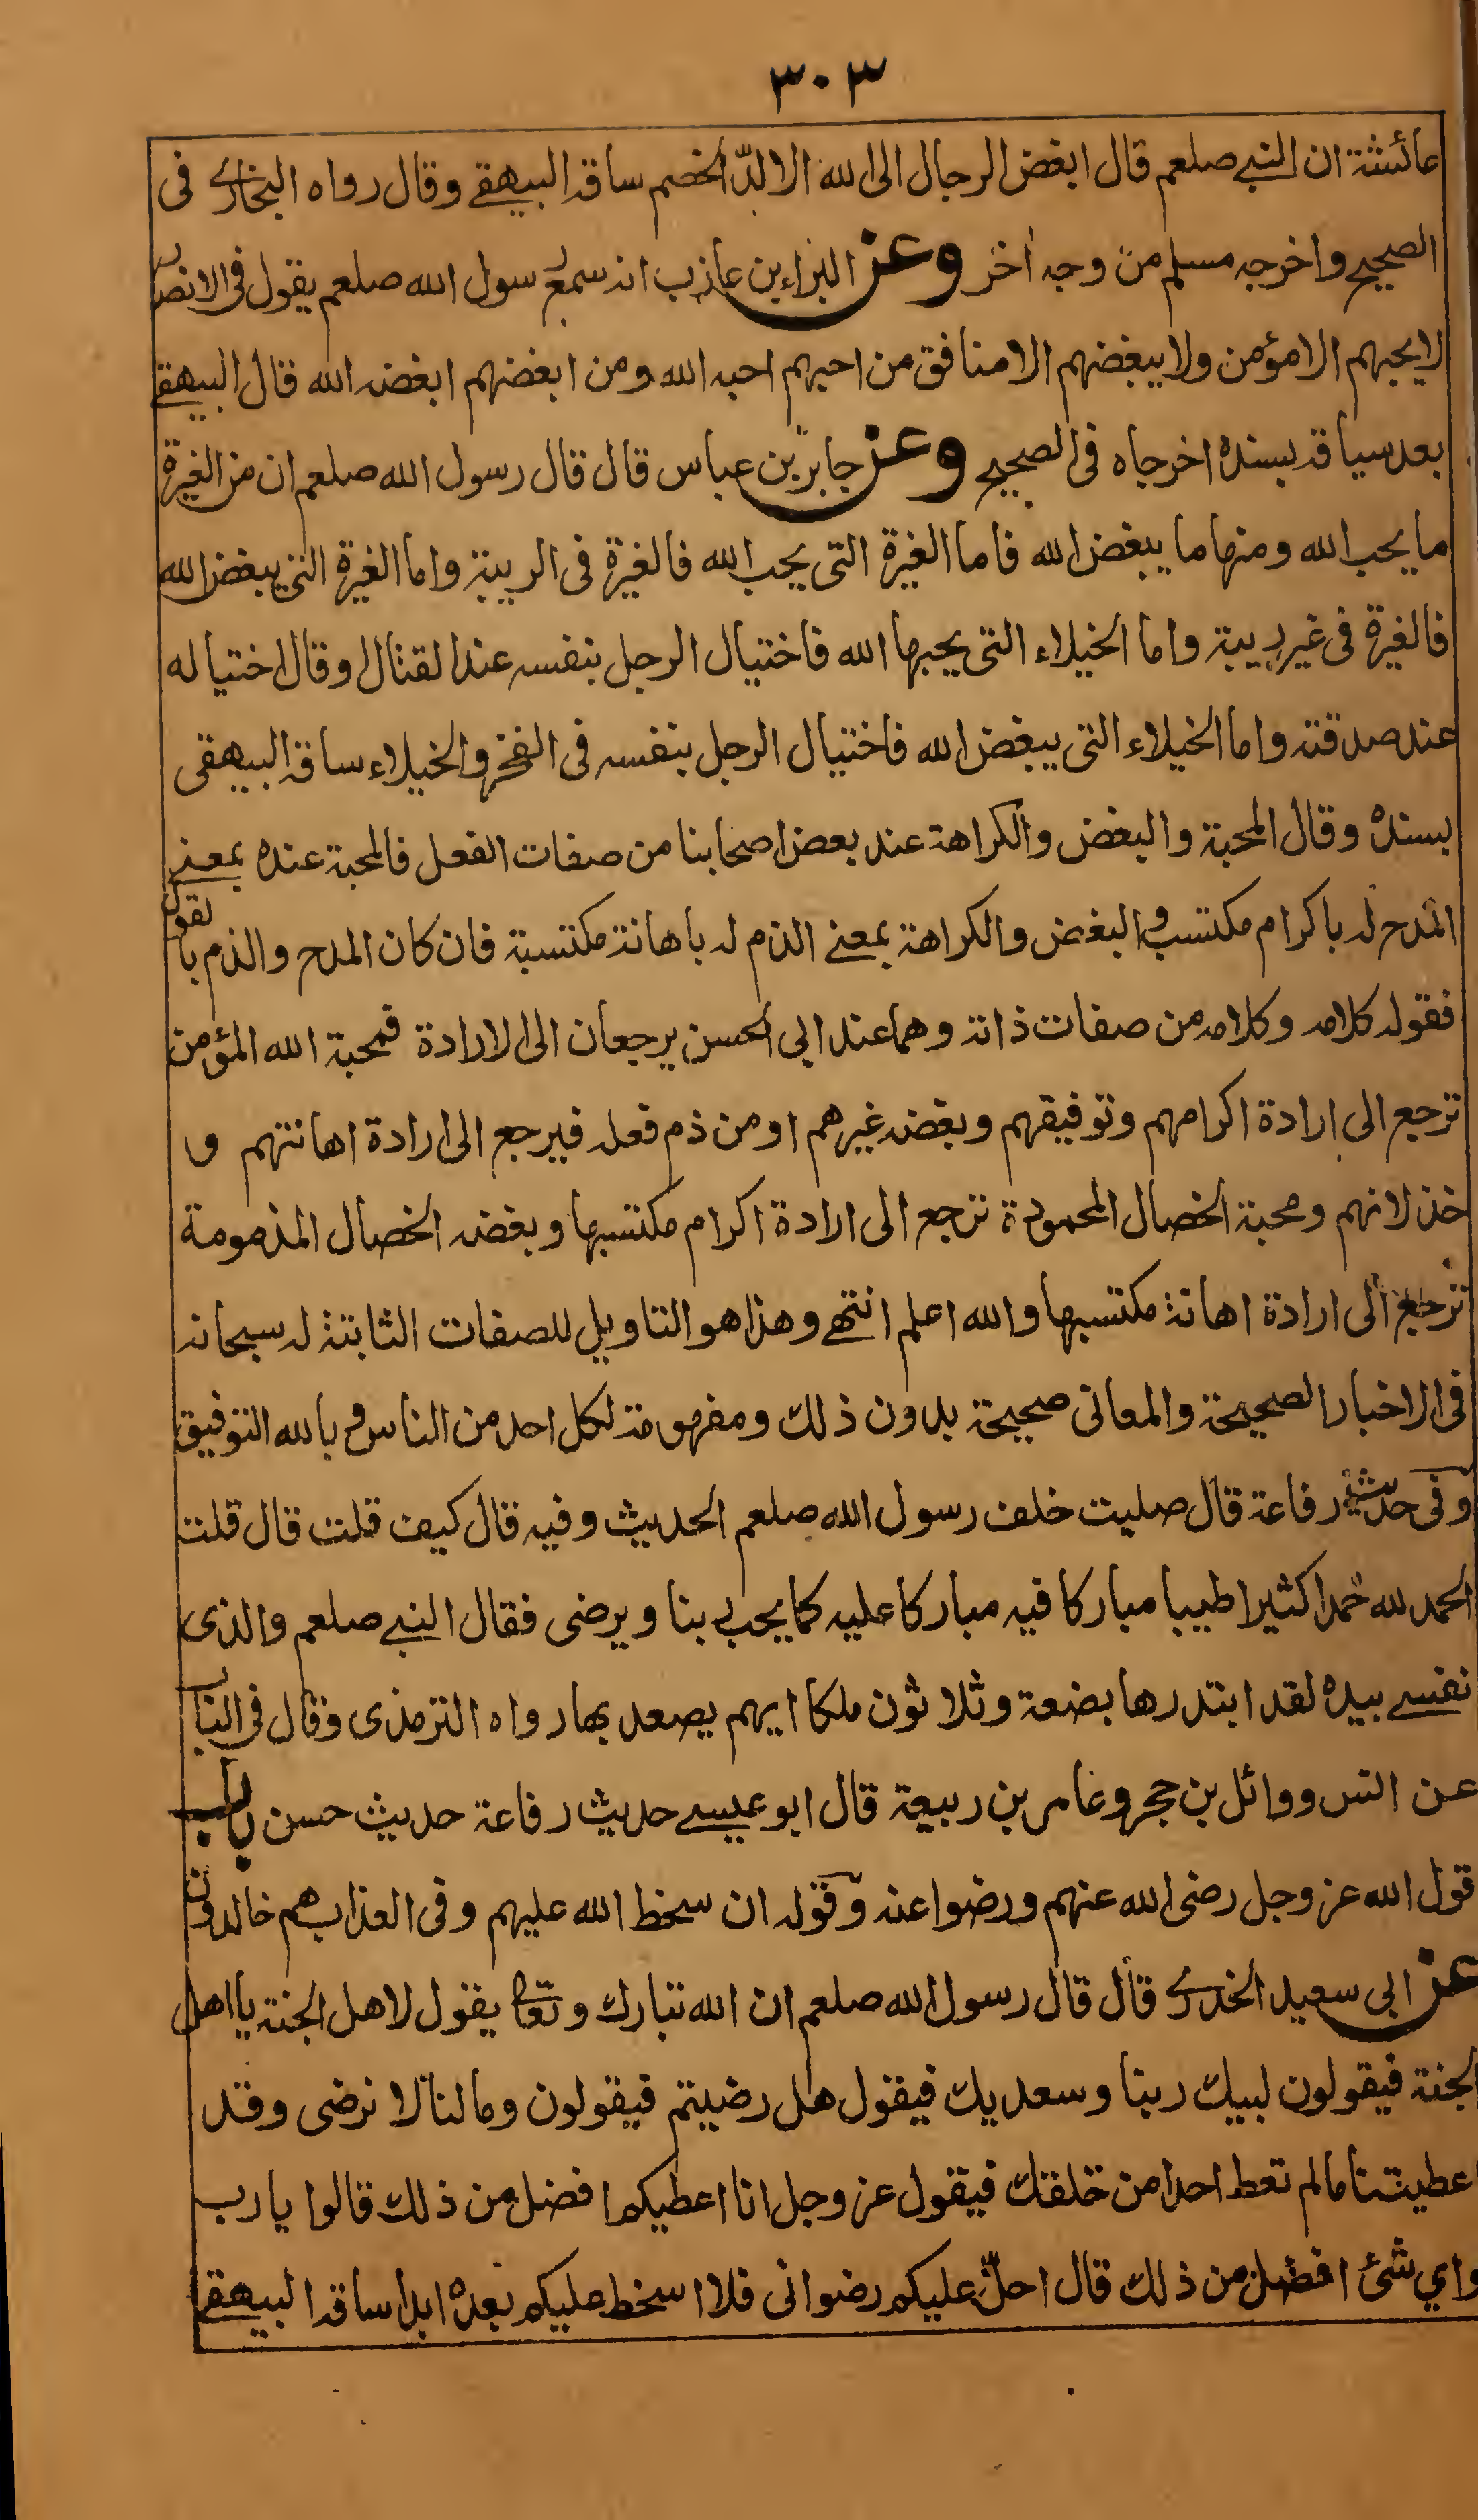 ٣٠٣
عائشة ان النبي صلعم قال ابغض الرجال الى الله الالدّ الخصم ساقه البيهقي وقال رواه البخاري فى
الصحيح واخرجه مسلم من وجه أخر وعن البراء بن عازب انه سمع رسول الله صلعم يقول فى الانصار
لا يحبهم الا مؤمن ولا يبغضهم الا منافق من احبهم احبه الله ومن ابغضهم ابغضه الله قال البيهقي
بعد سياقه بسنده اخرجاه فى الصحيح وعن جابر بن عباس قال قال رسول الله صلعم ان من الغيرة
ما يحب الله ومنها ما يبغض الله فاما الغيرة التى يحب الله فالغيرة فى الريبة واما الغيرة التى يبغض الله
فالغيرة فى غير ريبة واما الخيلاء التى يحبها الله فاختيال الرجل بنفسه عند القتال او قال اختياله
عند صدقته واما الخيلاء التى يبغض الله فاختيال الرجل بنفسه فى الفخر والخيلاء ساقه البيهقى
بسنده وقال المحبة والبغض والكراهة عند بعض اصحابنا من صفات الفعل فالمحبة عنده بمعنى
المدح له باكرام مكتسب والبغض والكراهة بمعنى الذم له باهانة مكتسبة فان كان المدح والذم بالقول
فقوله كلامه وكلامه من صفات ذاته وهما عند ابى الحسن يرجعان الى الارادة فمحبة الله المؤمن
ترجع الى ارادة اكرامهم وتوفيقهم وبغضه غيرهم او من ذم فعله فيرجع الى ارادة اهانتهم و
خذلانهم ومحبة الخصال المحمودة ترجع الى ارادة اكرام مكتسبها وبغضه الخصال المذمومة
ترجع الى ارادة اهانة مكتسبها والله اعلم انتهى وهذا هو التاويل للصفات الثابتة له سبحانه
فى الاخبار الصحيحة والمعانى صحيحة بدون ذلك ومفهومة لكل احد من الناس وبالله التوفيق
وفى حديث رفاعة قال صليت خلف رسول الله صلعم الحديث وفيه قال كيف قلت قال قلت
الحمد لله حمدا كثيرا طيبا مباركا فيه مباركا عليه كما يحب ربنا ويرضى فقال النبي صلعم والذى
نفسي بيده لقد ابتدرها بضعة وثلاثون ملكا ايهم يصعد بها رواه الترمذى وقال فى الباب
عن انس ووائل بن حجر وعامر بن ربيعة قال ابو عيسي حديث رفاعة حديث حسن باب
قول الله عز وجل رضى الله عنهم ورضوا عنه وقوله ان سخط الله عليهم وفى العذاب هم خالدون
عن ابى سعيد الخدري قال قال رسول الله صلعم ان الله تبارك وتعالى يقول لاهل الجنة يا اهل
الجنة فيقولون لبيك ربنا وسعديك فيقول هل رضيتم فيقولون وما لنا لا نرضى وقد
اعطيتنا ما لم تعط احدا من خلقك فيقول عز وجل انا اعطيكم افضل من ذلك قالوا يا رب
واي شئ افضل من ذلك قال احلّ عليكم رضوانى فلا اسخط عليكم بعده ابدا ساقه البيهقي